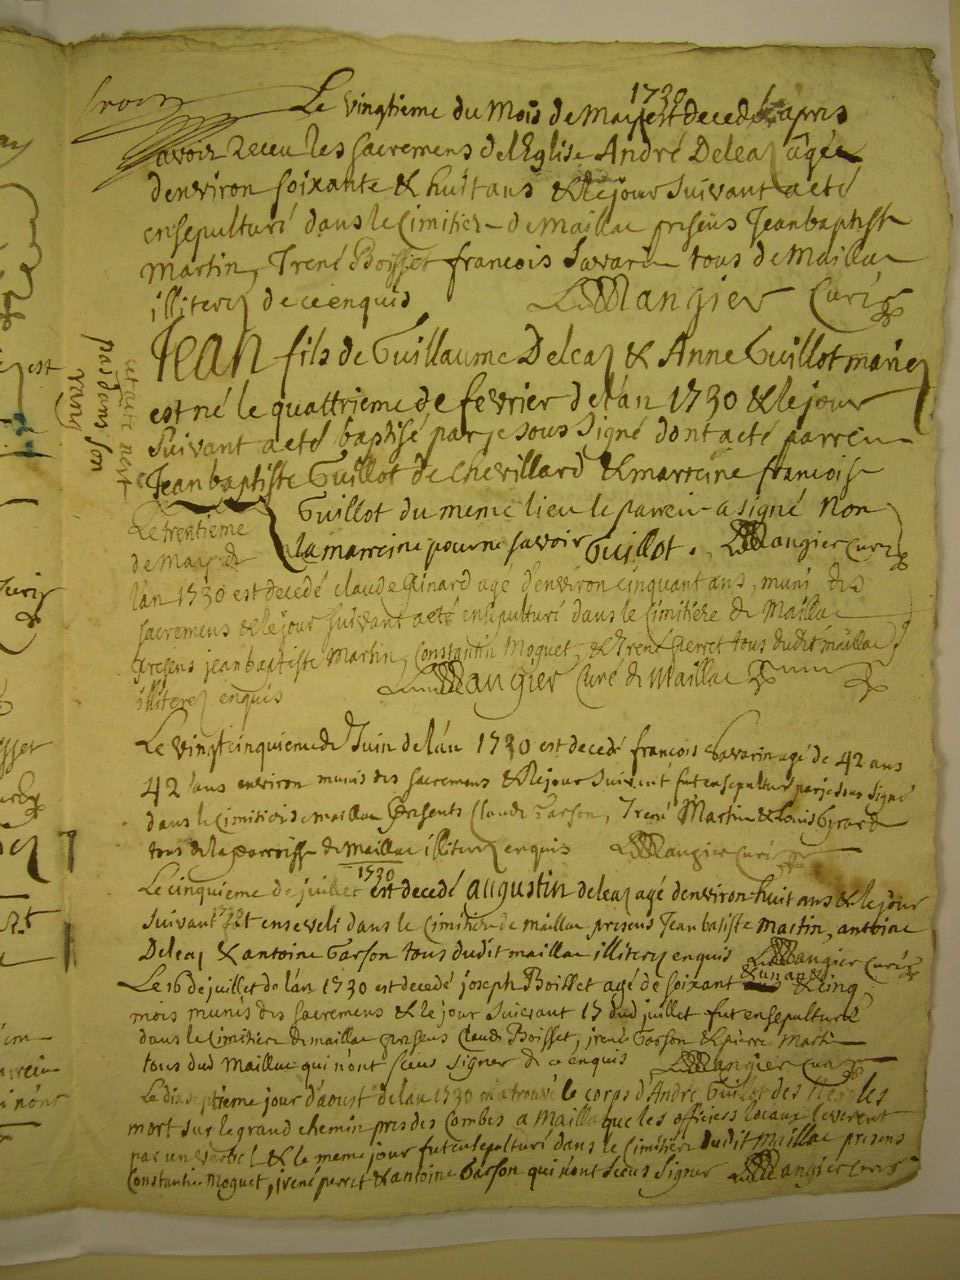 1730
Le vingtieme du Mois de May est decedé apres
avoir Receu les sacremens de lEglise André Deleaz agée
denviron soixante & huit ans & le jour suivant a eté
ensepulturé dans le Cimitier de maillac presens Jeanbaptiste
martin, Irené Boisset francois Savarin tous de Maillac
illiterez de ce enquis Mangier Curé
Jean fils de Guillaume Deleaz & Anne Guillot mariez
est né le quattrieme de fevrier de lán 1730 & le jour
suivant a eté baptisé par je sous signé dont a eté parrein
Jeanbaptiste Guillot de chevillard & marreine francoise
Guillot du meme lieu le parrein a signé Non
la marreine pour ne savoir Guillot. Mangier Curé
cet acte n'est
pas dans son
rang
Le trentieme
de May de
lán 1730 est decedé claude Ginard agé denviron cinquant ans, muni des
sacremens & le jour suivant a eté ensepulturé dans le Cimitiere de Maillac
presens jeanbaptiste Martin, Constantin Moquet, & Irené perret tous dudit maillac
illiterez enquis Mangier Curé de Maillac
Le vingtcinquieme de Juin de lán 1730 est decedé francois Savarin agé de 42 ans
42 ans environ munis des sacremens & le jour suivant fut ensepulturé par je sous signé
dans le Cimitier de maillac presents Claude Garson, Irené Martin & Louis Girard
tous de la parroisse de maillac illiterez enquis Mangier Curé
1730
Le cinquieme de juillet est decedé augustin deleaz agé denviron huit ans & le jour
suivant est enseveli dans le Cimitier de maillac presens Jean batiste martin, antoine
Deleaz & antoine Garson tous dudit maillac illiterez enquis Mangier Curé
& un an &
Le 16 de juillet de lán 1730 est decedé joseph Boisset agé de soixant & cinq
mois munis des sacremens & le jour suivant 17 dud juillet fut ensepulturé
dans le Cimitiere de maillac presens Claude Boisset, irené Garson & pierre Martin
tous dud Maillac qui nónt sceus signer de ce enquis Mangier Curé
Le dixseptieme jour dáoust de lán 1730 on a trouvé le corps dAndré Guillot des
mort sur le grand chemin pres des Combes a Maillac que les officiers locaux leverent
par un verbal & le meme jour fut ensepulturé dans le Cimitier dudit Maillac presens
Constantin Moquet, irené perret & antoine Garson qui nónt sceus signer Mangier Curé